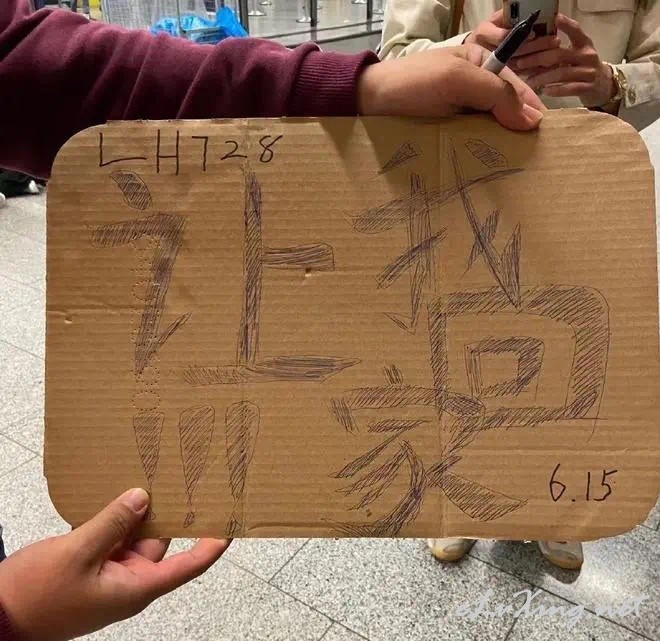 LH728
让我
回家
!!!
6.15
eLuXing.net